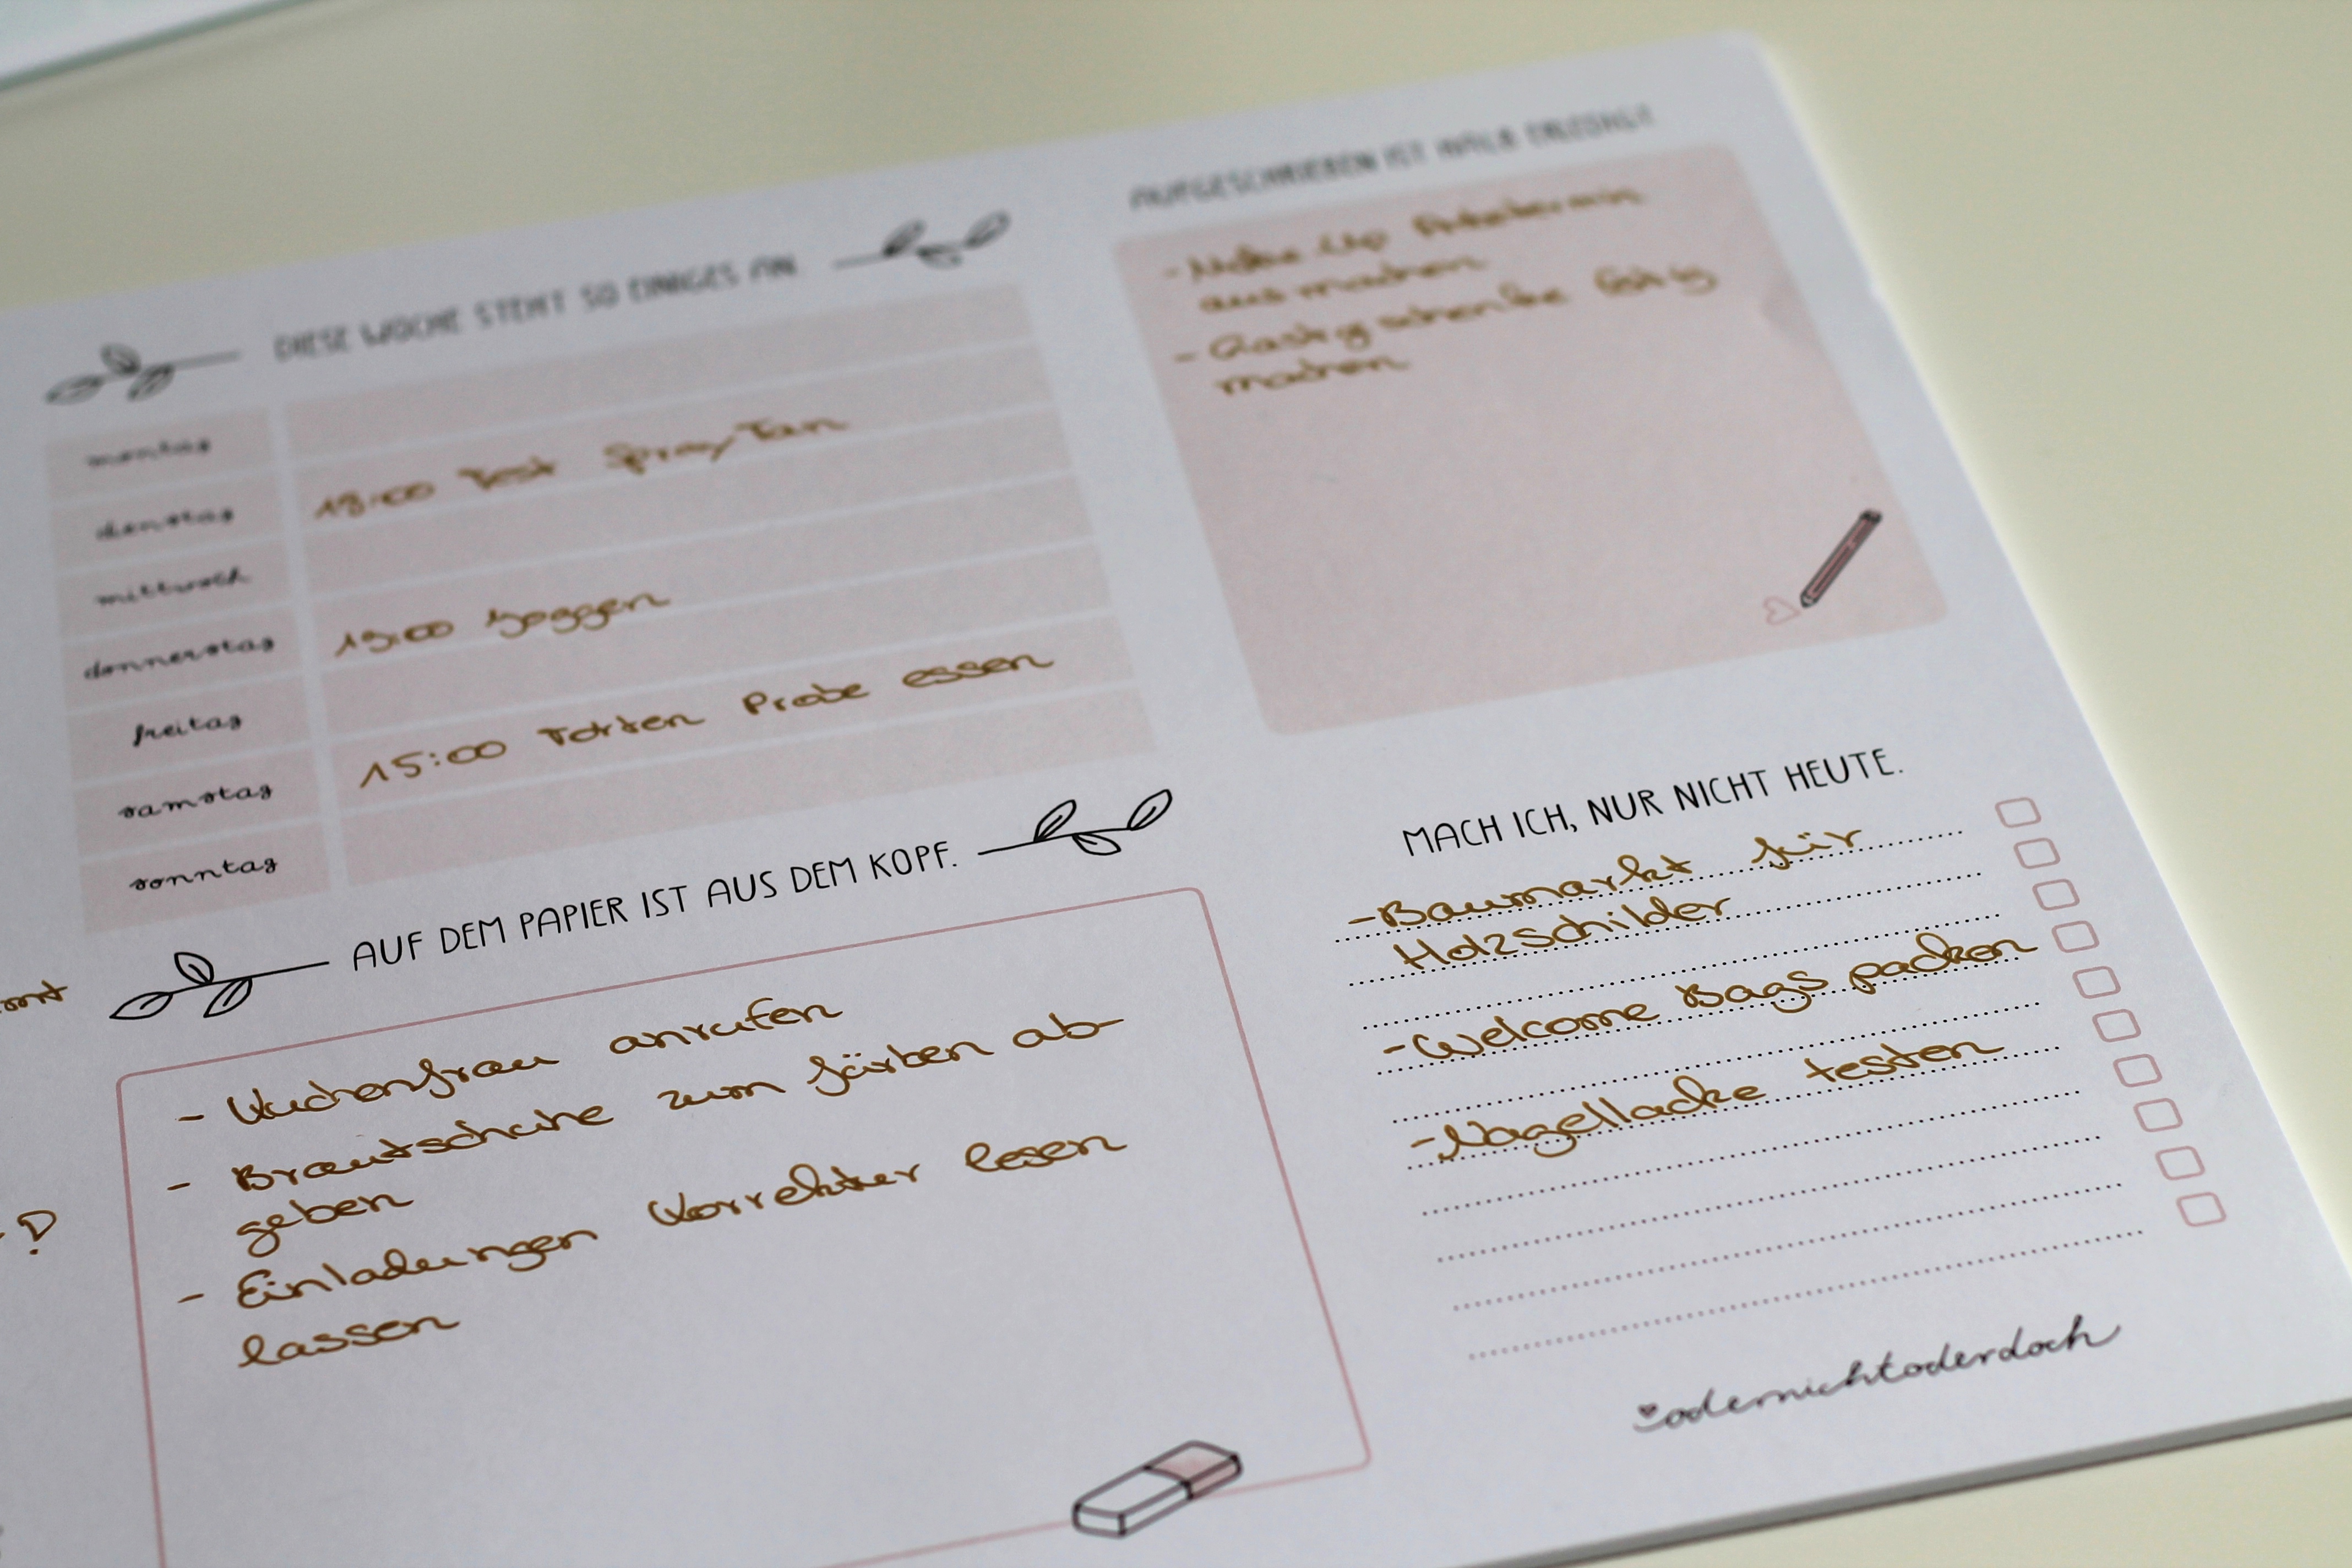 DIESE WOCHE STEHT SO EINIGES AN.
montag
dienstag 18:00 Test Spray Tan
mittwoch
donnerstag 19:00 Joggen
freitag
samstag 15:00 Torten Probe essen
sonntag
AUFGESCHRIEBEN IST HALB ERLEDIGT.
- Make-Up Probetermin
ausmachen
- Gastgeschenke fertig
machen
AUF DEM PAPIER IST AUS DEM KOPF.
- Kuchenfrau anrufen
- Brautschuhe zum färben ab-
geben
- Einladungen Korrektur lesen
lassen
MACH ICH, NUR NICHT HEUTE.
- Baumarkt für
Holzschilder
- Welcome Bags packen
- Nagellacke testen
odernichtoderdoch